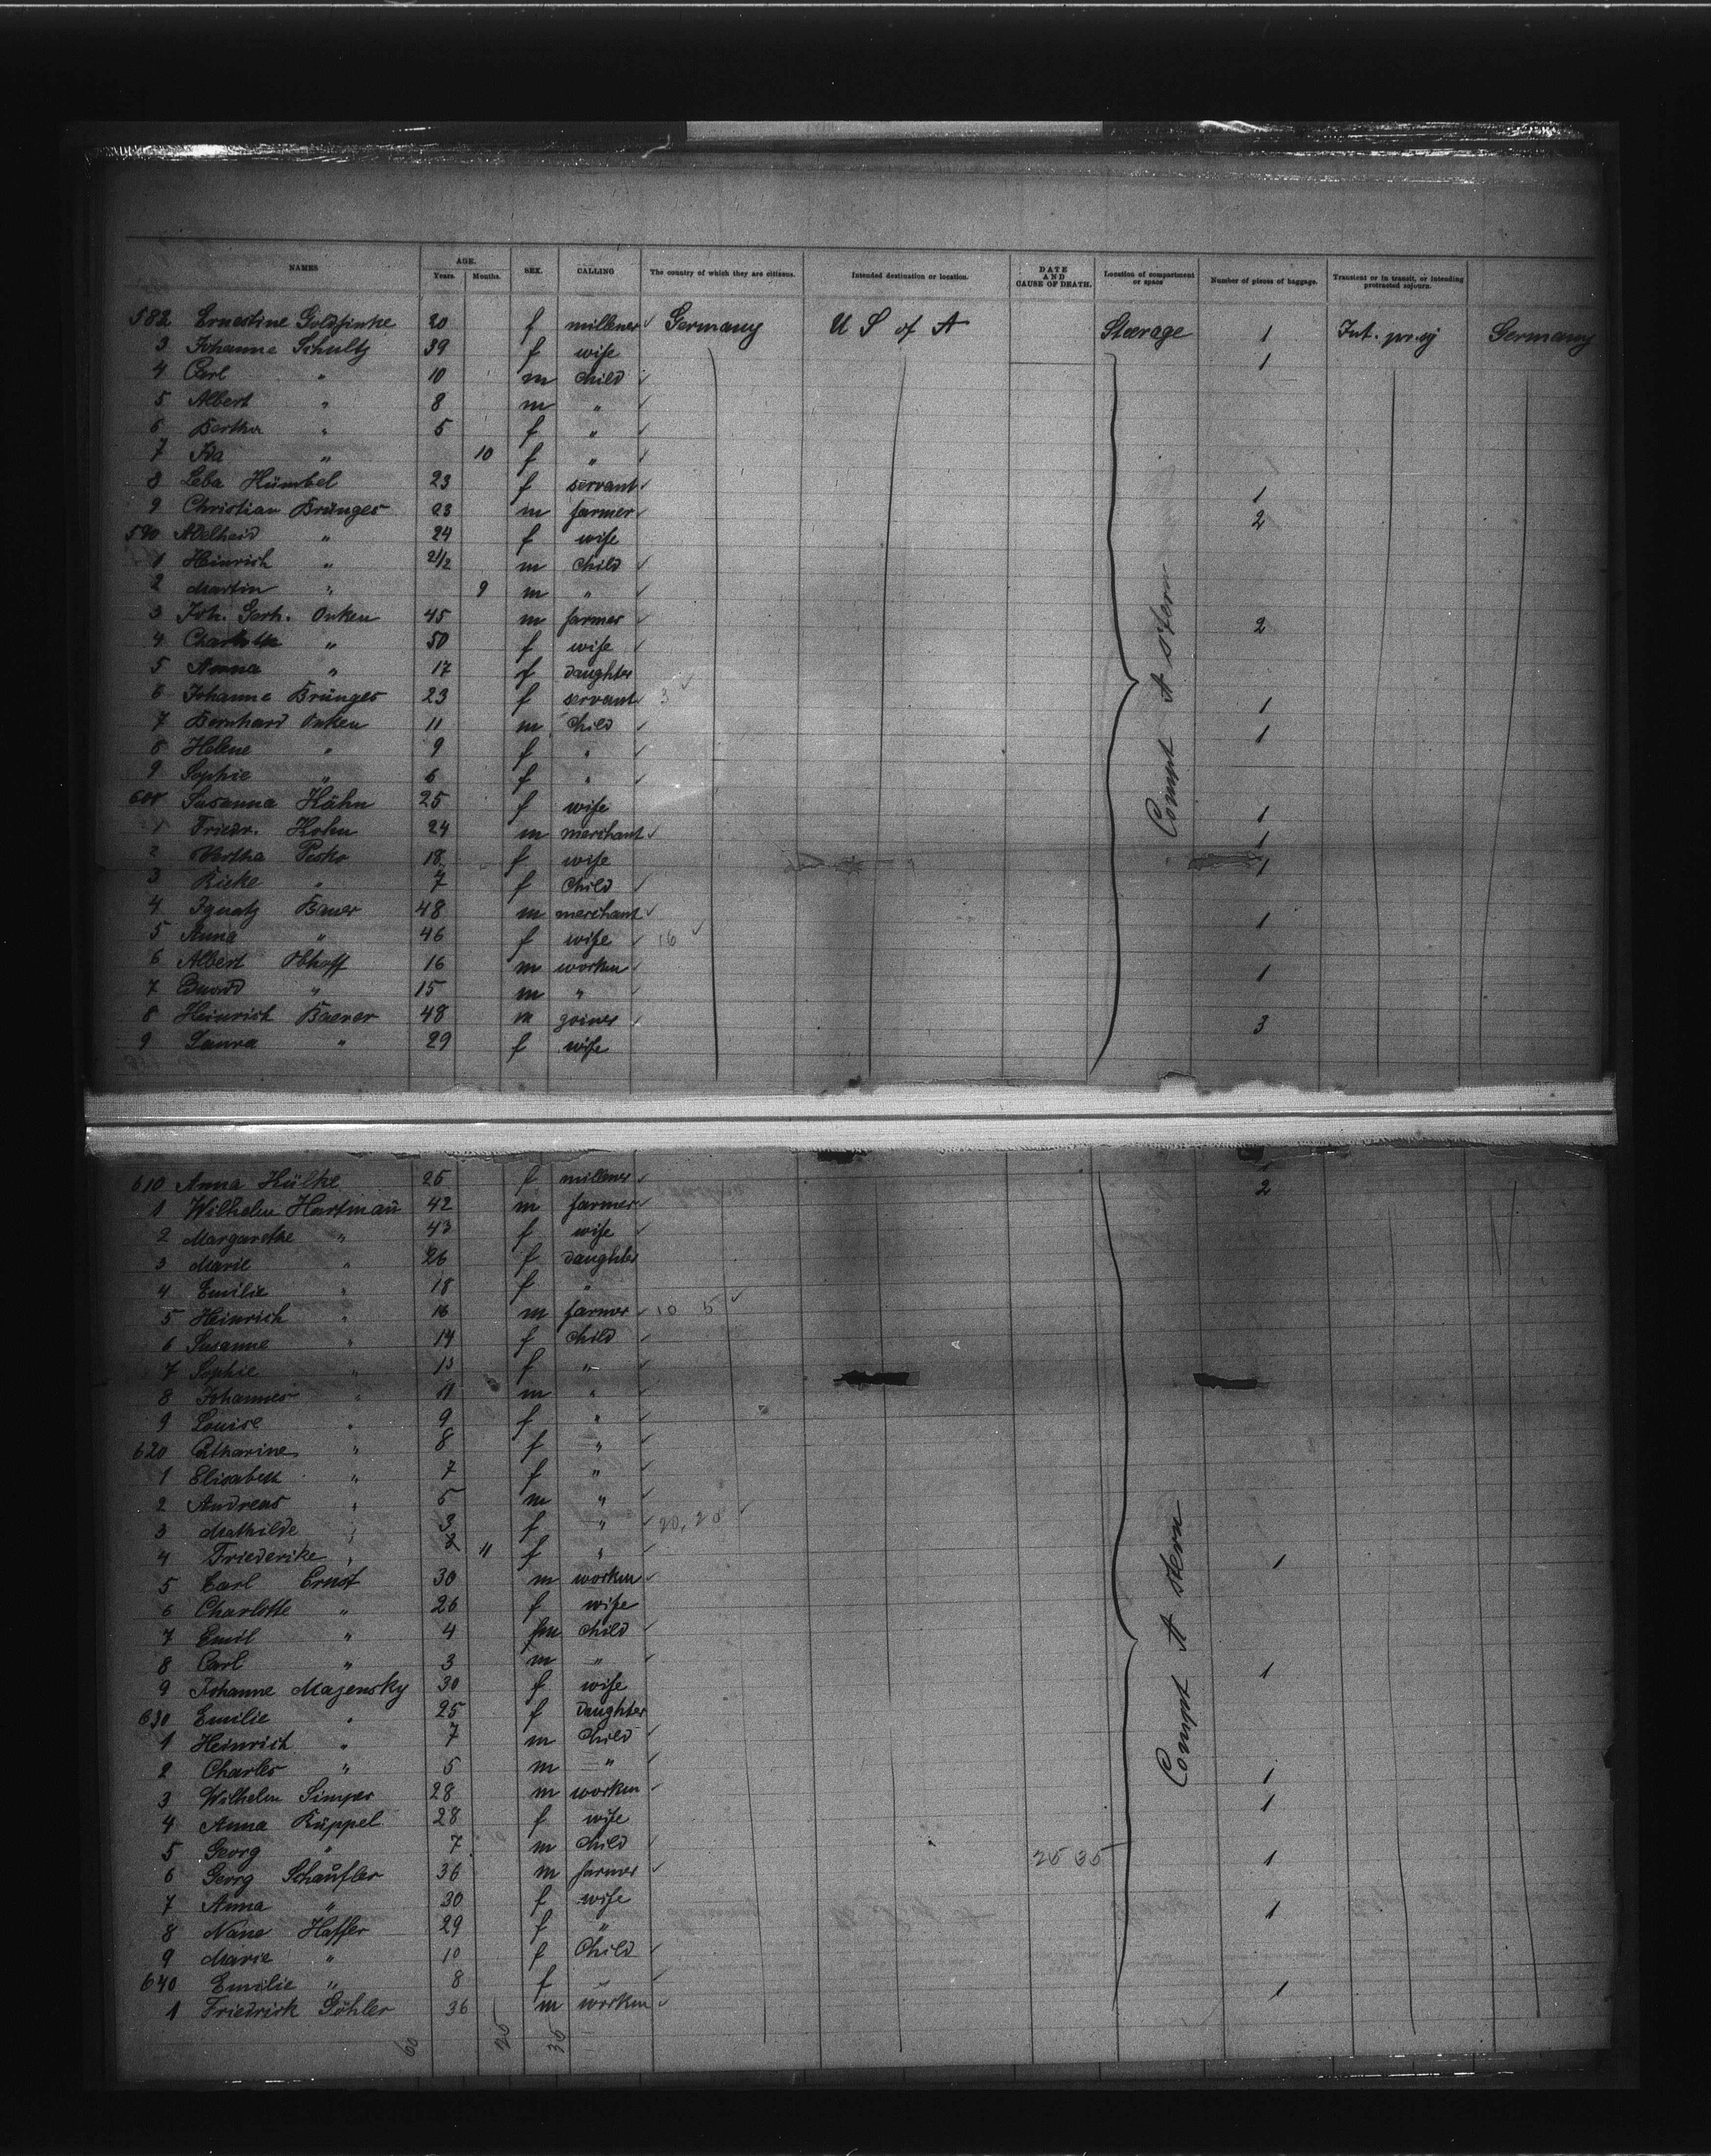 NAMES AGE. Years. Months. SEX. CALLING The country of which they are citizens. Intended destination or location. DATE AND CAUSE OF DEATH. Location of compartment or space Number of pieces of baggage. Transient or in transit, or intending protracted sojourn.
582 Ernestine Goldfinke 20 f millener ✓ Germany U S of A Steerage 1 Int. pr. sj Germany
3 Johanne Schultz 39 f wife 1
4 Carl " 10 m child ✓
5 Albert " 8 m " ✓
6 Bertha " 5 f " ✓
7 Ida " 10 f " ✓
8 Leba Hümbel 23 f servant ✓ 1
9 Christian Brünges 23 m farmer ✓ 2
590 Adelheid " 24 f wife
1 Heinrich " 2 1/2 m child ✓
2 Martin " 9 m " ✓
3 Joh. Gerh. Onken 45 m farmer ✓ 2
4 Charlotte " 50 f wife ✓
5 Anna " 17 f daughter
6 Johanne Brünges 23 f servant ✓ 3 ✓ 1
7 Bernhard Onken 11 m child ✓ 1
8 Helene " 9 f " ✓
9 Sophie " 6 f " ✓
600 Susanna Hähn 25 f wife 1
1 Friedr. Kohn 24 m merchant ✓ 1
2 Bertha 18 f wife 1
3 Rieke " 7 f child ✓
4 Ignatz Bauer 48 m merchant ✓ 1
5 Anna " 46 f wife ✓ 16 ✓
6 Albert Obhoff 16 m workm ✓ 1
7 Eduard " 15 m " ✓
8 Heinrich Baerer 48 m joiner ✓ 3
9 Laura " 29 f wife
Compt A stern
610 Anna Hülke 25 f millener ✓ 2
1 Wilhelm Hartmañ 42 m farmer ✓
2 Margarethe " 43 f wife ✓
3 Marie " 26 f daughter
4 Emilie " 18 f "
5 Heinrich " 16 m farmer ✓ 10 5 ✓
6 Susanne " 14 f child ✓
7 Sophie " 13 f " ✓
8 Johannes " 11 m " ✓
9 Louise " 9 f " ✓
620 Catharine " 8 f " ✓
1 Elisabeth " 7 f " ✓
2 Andreas " 5 m " ✓
3 Mathilde " 3 f " ✓ 20, 20 ✓
4 Friederike " 11 f " ✓ 1
5 Carl Ernst 30 m workm ✓
6 Charlotte " 26 f wife
7 Emil " 4 m child ✓
8 Carl " 3 m " ✓ 1
9 Johanne Majensky 30 f wife
630 Emilie " 25 f daughter
1 Heinrich " 7 m child ✓
2 Charles " 5 m " ✓ 1
3 Wilhelm Simper 28 m workm ✓ 1
4 Anna Rüppel 28 f wife
5 Georg " 7 m child ✓ 25 35 1
6 Georg Schaufler 36 m farmer ✓
7 Anna " 30 f wife 1
8 Nane Haffer 29 f "
9 Marie " 10 f Child ✓
640 Emilie " 8 f " ✓ 1
1 Friedrich Göhler 36 m workm ✓
Compt A stern
60 25 35